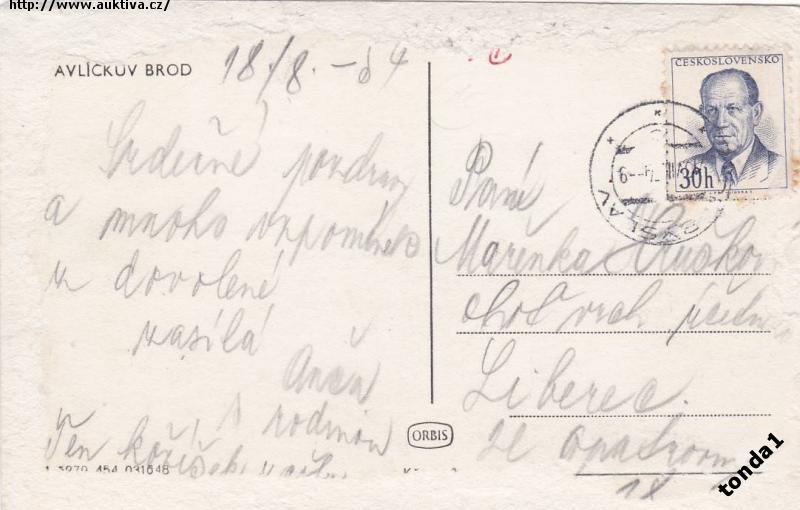 http://www.auktiva.cz/
AVLÍČKŮV BROD
18/8.-54
Srdečné pozdravy
a mnoho vzpomínek
z dovolené
zasílá
Anča
s rodinou
Ten
1 3279 454 031648
ORBIS
ČESKOSLOVENSKO
30h
SLAV
Paní
Marenka
choť vrch
Liberec.
ul.
1X
tonda1